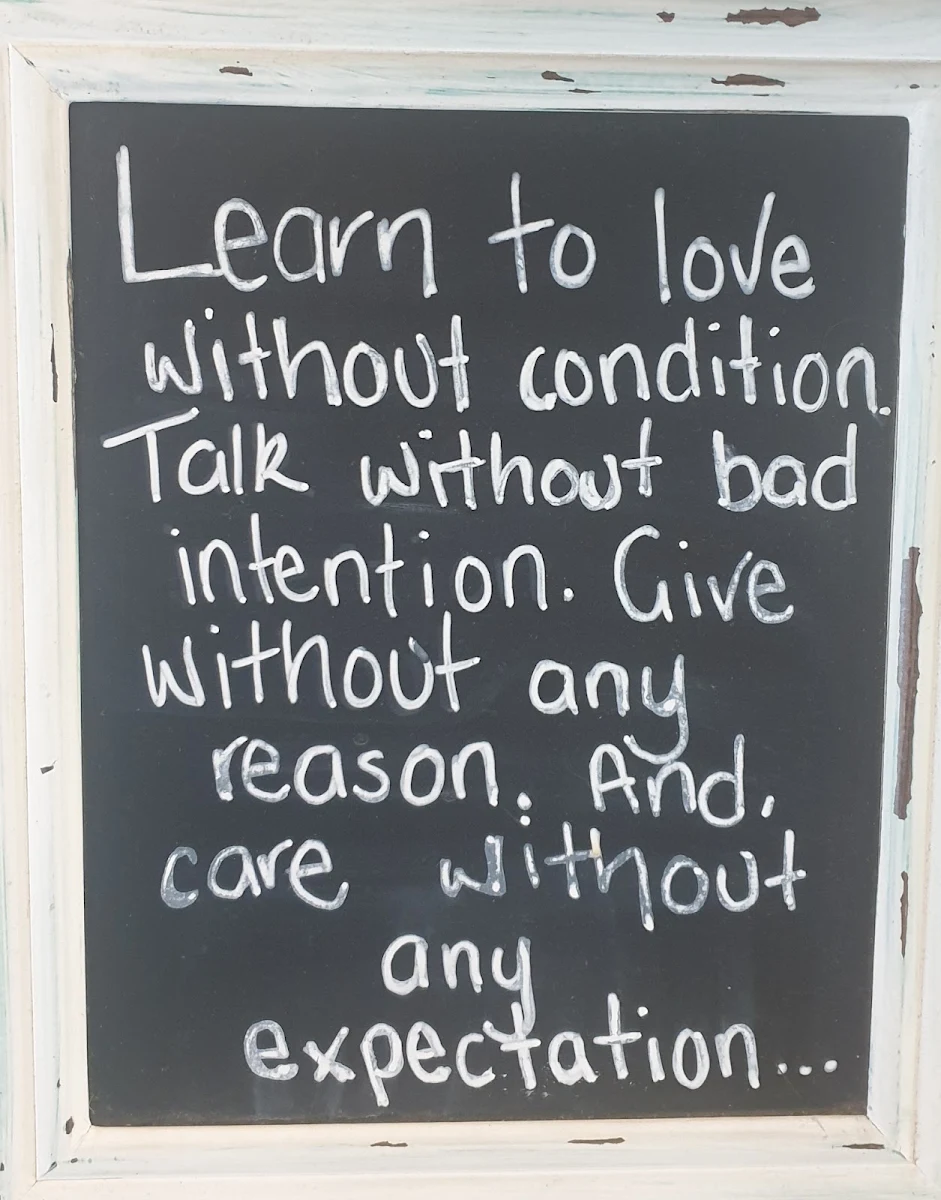 Learn to love
without condition.
Talk without bad
intention. Give
without any
reason. And,
care without
any
expectation...